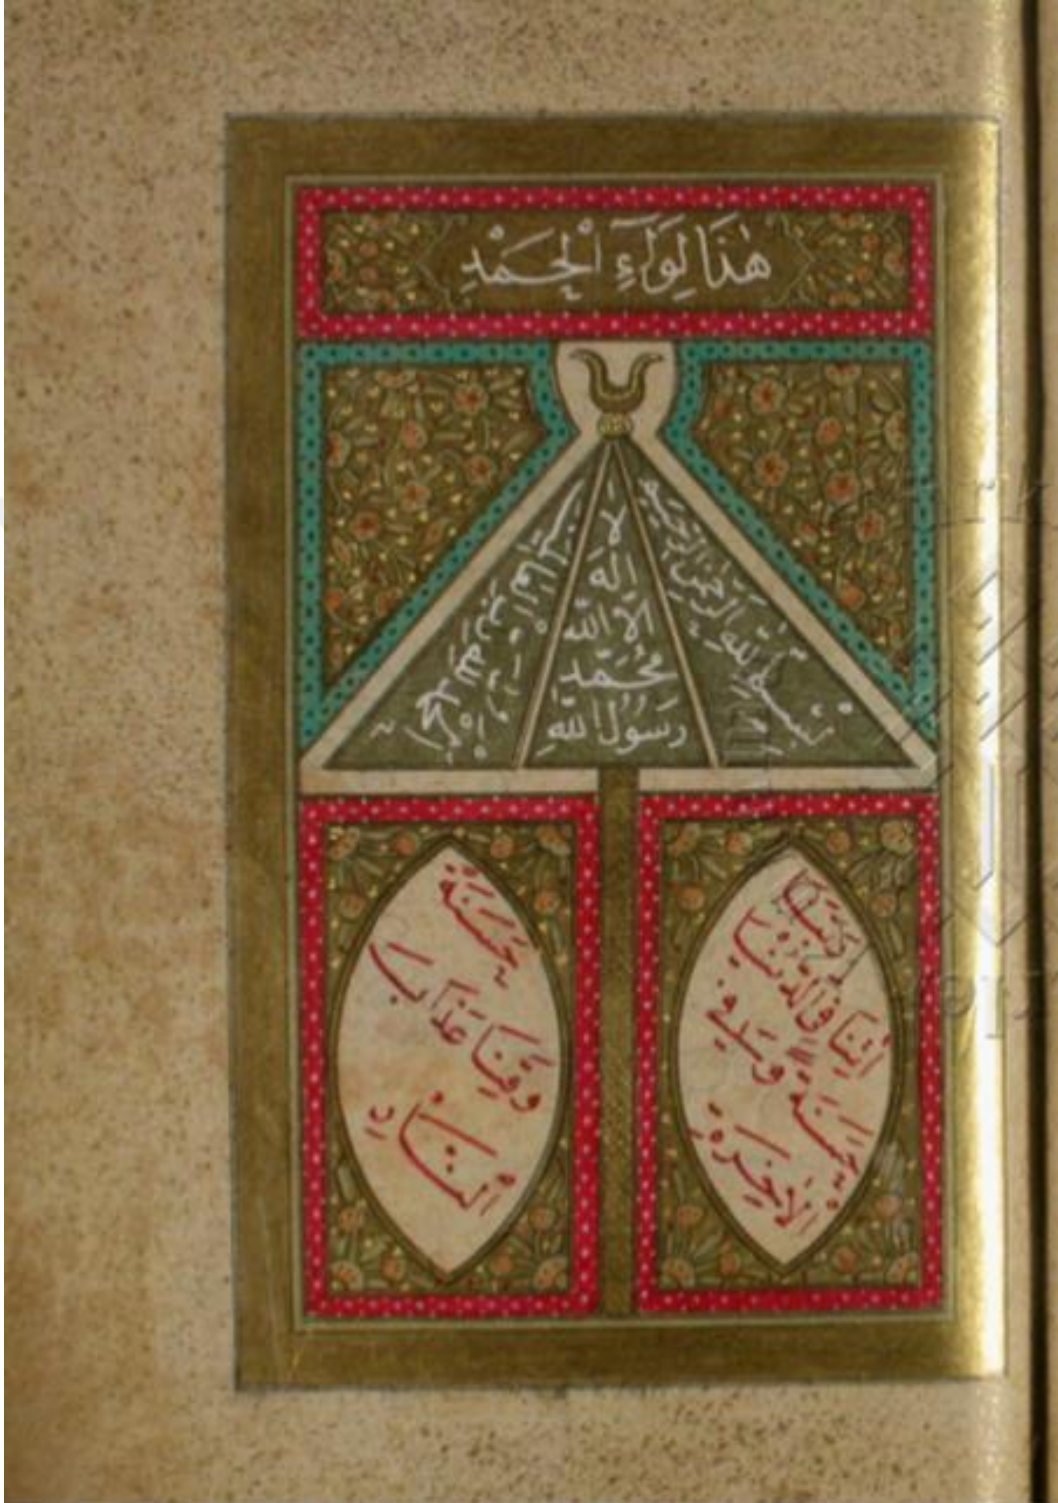 هٰذَا لِوَآءِ الْحَمْدِ
بِسْمِ اللّٰهِ الرَّحْمٰنِ الرَّحِيمِ
لَا
اِلٰهَ
اِلَّا اللّٰه
مُحَمَّد
رَسُولُ اللّٰهِ
اَلْحَمْدُ لِلّٰهِ رَبِّ الْعَالَمِينَ
رَبَّنَا
اٰتِنَا فِي الدُّنْيَا
حَسَنَةً وَفِي
الْاٰخِرَةِ
حَسَنَةً
وَقِنَا عَذَابَ
النَّارِ